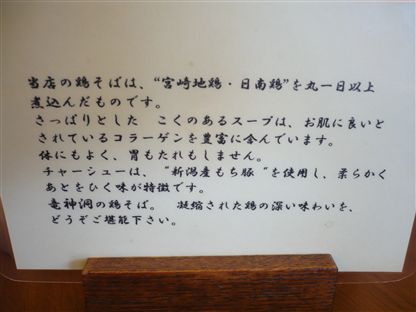 当店の鶏そばは、“宮崎地鶏・日南鶏”を丸一日以上
煮込んだものです。
さっぱりとした　こくのあるスープは、お肌に良いと
されているコラーゲンを豊富に含んでいます。
体にもよく、胃もたれもしません。
チャーシューは、“新潟産もち豚“を使用し、柔らかく
あとをひく味が特徴です。
竜神洞の鶏そば。　凝縮された鶏の深い味わいを、
どうぞご堪能下さい。